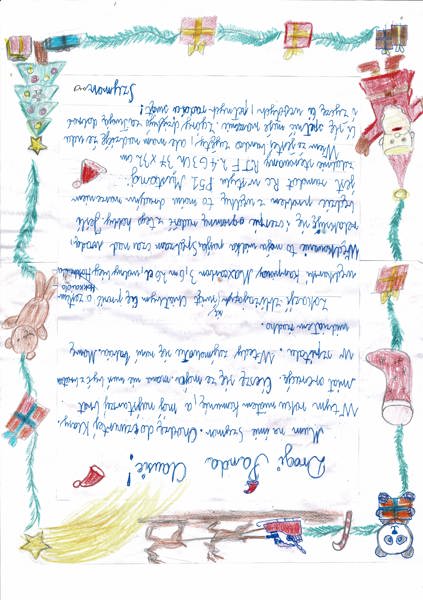 Drogi Panda Clausie!
Mam na imię Szymon. Chodzę do czwartej klasy.
W tym roku miałem komunię, a mój najstarszy brat
miał operację. Cieszę się że moja mama nie musi być z bratem
w szpitalu. Wtedy zajmowała się nami babcia. Mamę
widziałem rzadko.
Z okazji zbliżających się świąt chciałbym Cię prosić o zestaw
wędkarski karpiowy Maxcarbon 3,6m 26el, wolny bieg Hokkaido
Wędkowanie to moja wielka pasja. Spędzam czas nad wodą,
relaksuję się i czerpię ogromną radość z tego hobby. Jeśli
będzie problem z wędką to moim drugim marzeniem
jest samolot Rc w stylu P51 Mustang:
zdalnie sterowany RTF 2.4G 3Ch 37x32 cm
Wiem że jesteś bardzo zajęty, ale mam nadzieję że uda
Ci się spełnić moje marzenie. Z góry dziękuję za Twoją dobroć
i życzę Ci wesołych, pełnych radości świąt!
Szymon